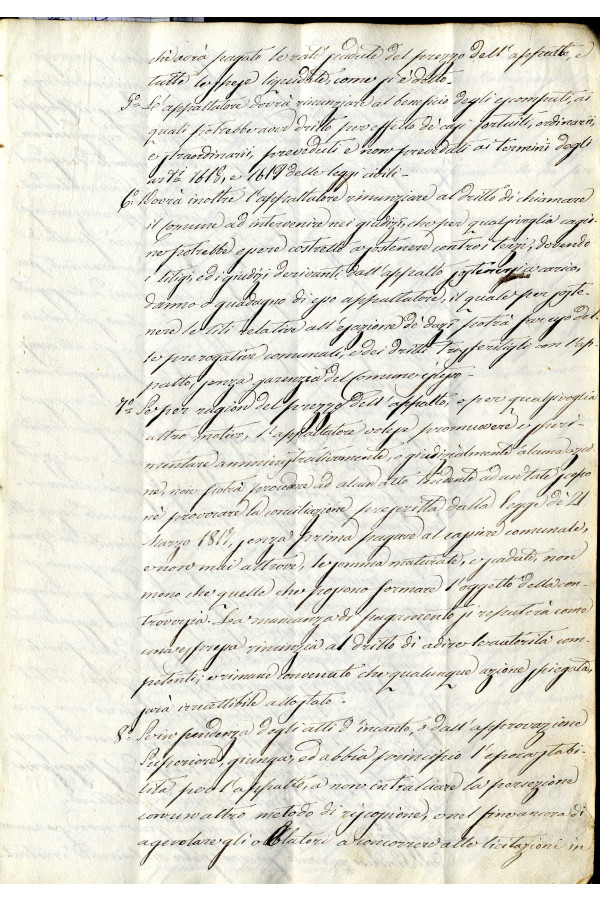 chè avrà pagato le rate scadute del prezzo dell'appalto, e
tutte le spese liquidate, come si è detto.
5° L'appaltatore dovrà rinunziare al beneficio degli escomputi, ai
quali potrebbe aver dritto per effetto de' casi fortuiti, ordinarii,
e straordinarii, preveduti e non preveduti ai termini degli
art. 1618, e 1619 delle leggi civili.
6° Dovrà inoltre l'appaltatore rinunziare al dritto di chiamare
il Comune ad intervenire nei giudizj, che per qualsivoglia cagio-
ne potrebbe essere costretto a sostenere contro i terzi, dovendo
i litigj, ed i giudizj derivanti dall'appalto sostenersi a carico,
danno o guadagno di esso appaltatore, il quale per soste-
nere le liti relative all'esazione de' dazj potrà far uso del-
le prerogative comunali, e dei dritti trasferitigli con l'ap-
palto, senza garenzia del Comune istesso.
7° Se per ragion del prezzo dell'appalto, o per qualsivoglia
altro motivo, l'appaltatore volesse promuovere e speri-
mentare amministrativamente, o giudizialmente alcuna azio-
ne, non potrà procedere ad alcun atto tendente ad
nè provocare la conciliazione prescritta dalla legge de' 21
Marzo 1817, senza prima pagare al cassiere comunale,
e non mai altrove, le somme maturate, e scadute, non
meno che quelle che possono formare l'oggetto della con-
troversia. La mancanza di pagamento si reputerà come
una espressa rinunzia al dritto di adire le autorità com-
petenti, e rimane convenuto che qualunque azione spiegata,
sarà irricettibile allo stato.
8° Se in pendenza degli atti d'incanto, o dall'approvazione
Superiore, giunga, ed abbia principio l'epoca stabi-
lita per l'appalto, a non intralciare la percezione
con un altro metodo di riscossione, e nel fine ancora di
agevolare gli oblatori a concorrere alle licitazioni in